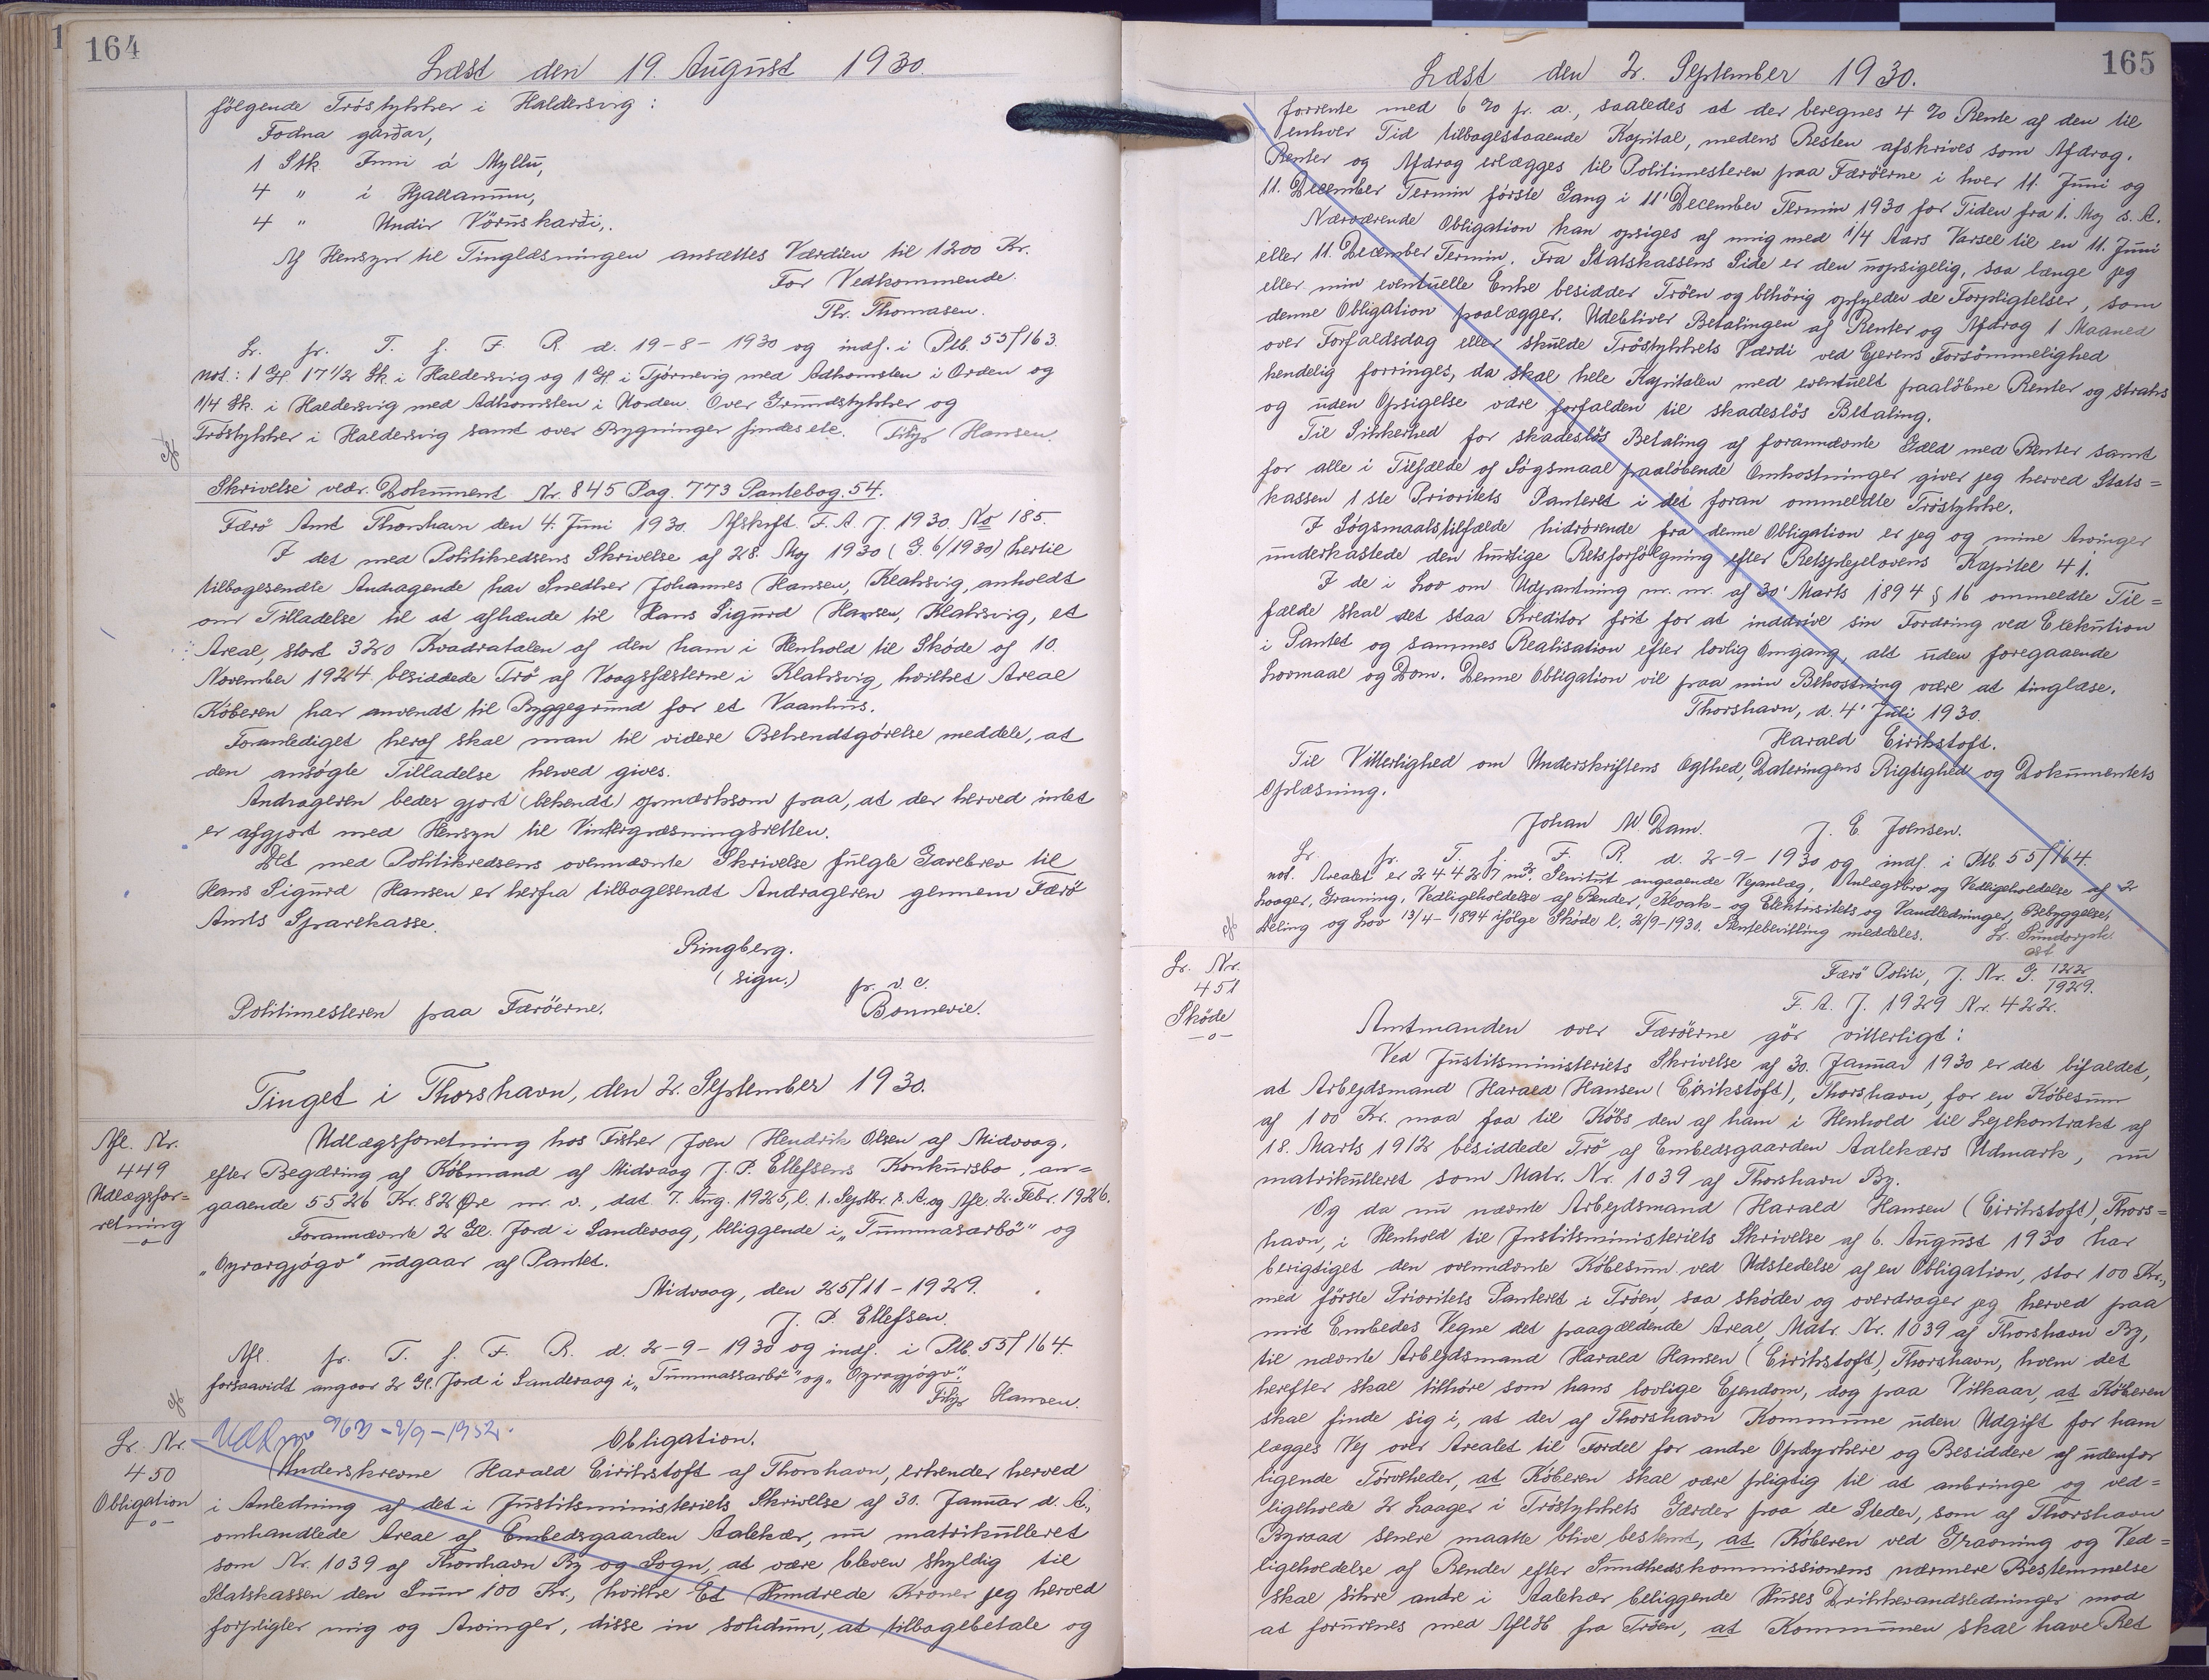 164
Læst den 19. August 1930.
følgende Tröstykker i Haldersvig:
Fodna garðar,
1 Stk Inni á Myllu,
4 " i Hjallanum,
4 " Undir Vöruskarði,.
Af Hensyn til Tinglæsningen ansættes Værdien til 1200 Kr.
For Vedkommende.
Th. Thomasen.
Lr. fr. T. f. F. R. d. 19-8-1930 og indf. i Ptb. 55/163.
not.: 1 Gl. 17 1/2 Sk. i Haldersvig og 1 Gl. i Tjörnevig med Adkomsten i Orden og
1/4 Sk. i Haldersvig med Adkomsten i Uorden. Over Grundstykker og
Tröstykker i Haldersvig samt over Bygninger findes ete. Filip Hansen.
Skrivelse vedr. Dokument Nr. 845 Pag. 773 Pantebog. 54.
Færö Amt Thorshavn den 4. Juni 1930. Afskrift. F. A. J. 1930. No 185.
I det med Politikredsens Skrivelse af 28. Maj 1930 (G. 6/1930) hertil
tilbagesendte Andragende har Snedker Johannes Hansen, Klaksvig, anholdt
om Tilladelse til at afhænde til Hans Sigurd Hansen, Klaksvig, et
Areal, stort 320 Kvadratalen af den ham i Henhold til Sköde af 10.
November 1924 besiddede Trö af Vaagsfæsterne i Klaksvig, hvilket Areal
Köberen har anvendt til Byggegrund for et Vaanhus.
Foranlediget heraf skal man til videre Bekendtgörelse meddele, at
den ansögte Tilladelse herved gives.
Andrageren bedes gjort (bekendt) opmærksom paa, at der herved intet
er afgjort med Hensyn til Vintergræsningsretten.
Det med Politikredsens ovennævnte Skrivelse fulgte Gavebrev til
Hans Sigurd Hansen er herfra tilbagesendt Andrageren gennem Færö
Amts Sparekasse.
Ringberg.
(sign.)
fr. v. c.
Politimesteren paa Færöerne. Bonnevie.
Tinget i Thorshavn, den 2. September 1930.
Afl. Nr.
449
Udlægsfor=
retning
-o-
Udlægsforretning hos Fisker Joen Hendrik Olsen af Midvaag,
efter Begæring af Köbmand af Midvaag J. P. Ellefsens Konkursbo, an=
gaaende 5526 Kr. 82 Øre m. v., dat. 7. Aug. 1925, l. 1. Septbr. s. A. og Afl. 2. Febr. 1926.
Forannævnte 2 Gl. Jord i Sandevaag, beliggende i „Tummasarbö" og
„Oyrargjógv" udgaar af Pantet.
Midvaag, den 25/11-1929.
J. P. Ellefsen.
Afl. fr. T. f. F. R. d. 2-9-1930 og indf. i Ptb. 55/164.
forsaavidt angaar 2 Gl. Jord i Sandevaag i „Tummassarbö" og „Oyragjógv".
Filip Hansen.
Lr. Nr.
450
Obligation
-o-
963 - 2/9 - 1952.
Obligation.
Underskrevne Harald Eirikstoft af Thorshavn, erkender herved
i Anledning af det i Justitsministeriets Skrivelse af 30. Januar d. A.,
omhandlede Areal af Embedsgaarden Aalekær, nu matrikulleret
som Nr. 1039 af Thorshavn By og Sogn, at være bleven skyldig til
Statskassen den Sum 100 Kr., hvilke Et Hundrede Kroner jeg herved
forpligter mig og Arvinger, disse in solidum, at tilbagebetale og
165
Læst den 2. September 1930.
forrente med 6 % p. a., saaledes at der beregnes 4 % Rente af den til
enhver Tid tilbagestaaende Kapital, medens Resten afskrives som Afdrag.
Renter og Afdrag erlægges til Politimesteren paa Færöerne i hver 11. Juni og
11. December Termin første Gang i 11' December Termin 1930 for Tiden fra 1. Maj s. A.
Nærværende Obligation kan opsiges af mig med 1/4 Aars Varsel til en 11. Juni
eller 11. December Termin. Fra Statskassens Side er den uopsigelig, saa længe jeg
eller min eventuelle Enke besidder Tröen og behörig opfylder de Forpligtelser, som
denne Obligation paalægger. Udebliver Betalingen af Renter og Afdrag 1 Maaned
over Forfaldsdag eller skulde Tröstykkets Værdi ved Ejerens Forsömmelighed
kendelig forringes, da skal hele Kapitalen med eventuelt paalöbne Renter og straks
og uden Opsigelse være forfalden til skadeslös Betaling.
Til Sikkerhed for skadeslös Betaling af forannævnte Gæld med Renter samt
for alle i Tilfælde af Sögsmaal paalöbende Omkostninger giver jeg herved Stats=
kassen 1ste Prioritets Panteret i det foran ommeldte Tröstykke.
I Sögsmaalstilfælde hidrörende fra denne Obligation er jeg og mine Arvinger
underkastede den hurtige Retsforfölgning efter Retsplejelovens Kapitel 41.
I de i Lov om Udpantning m. m. af 30' Marts 1894 § 16 ommeldte Til=
fælde skal det staa Kreditor frit for at inddrive sin Fordring ved Exekution
i Pantet og sammes Realisation efter lovlig Omgang, alt uden foregaaende
Lovmaal og Dom. Denne Obligation vil paa min Bekostning være at tinglæse.
Thorshavn, d. 4' Juli 1930.
Harald Eirikstoft.
Til Vitterlighed om Underskriftens Ægthed, Dateringens Rigtighed og Dokumentets
Oplæsning.
Johan M. Dam. J. E. Joensen.
Lr. fr. T. f. F. R. d. 2-9-1930 og indf. i Ptb. 55/164.
not. Arealet er 24427 m2. Servitut angaaende Vejanlæg, Anlægsbro og Vedligeholdelse af 2
Laager, Gravning, Vedligeholdelse af Render, Kloak- og Elektrisitets og Vandledninger, Bebyggelse,
Deling og Lov 13/4-1894 ifölge Sköde l. 2/9-1930. Rentebevilling meddeles. Lr. Sundorph.
ast
Lr. Nr.
451
Sköde
-o-
Færö Politi, J. Nr. G. 122/1929.
F. A. J. 1929 Nr. 422.
Amtmanden over Færöerne gör vitterligt:
Ved Justitsministeriets Skrivelse af 30. Januar 1930 er det bifaldet,
at Arbejdsmand Harald Hansen (Eirikstoft), Thorshavn, for en Köbesum
af 100 Kr. maa faa til Köbs den af ham i Henhold til Lejekontrakt af
18. Marts 1912 besiddede Trö af Embedsgaarden Aalekærs Udmark, nu
matrikulleret som Matr. Nr. 1039 af Thorshavn By.
Og da nu nævnte Arbejdsmand Harald Hansen (Eirikstoft), Thors=
havn, i Henhold til Justitsministeriets Skrivelse af 6. August 1930 har
berigtiget den ovennævnte Köbesum ved Udstedelse af en Obligation, stor 100 Kr.,
med förste Prioritets Panteret i Tröen, saa sköder og overdrager jeg herved paa
mit Embedes Vegne det paagældende Areal, Matr. Nr. 1039 af Thorshavn By,
til nævnte Arbejdsmand Harald Hansen (Eirikstoft), Thorshavn, hvem det
herefter skal tilhöre som hans lovlige Ejendom, dog paa Vilkaar, at Köberen
skal finde sig i, at der af Thorshavn Kommune uden Udgift for ham
lægges Vej over Arealet til Fordel for andre Opdyrkere og Besiddere af udenfor
liggende Törvheder, at Köberen skal være pligtig til at anbringe og ved=
ligeholde 2 Laager i Tröstykkets Gærder paa de Steder, som af Thorshavn
Byraad senere maatte blive bestemt, at Köberen ved Gravning og Ved=
ligeholdelse af Render efter Sundhedskommissionens nærmere Bestemmelse
skal sikre andre i Aalekær beliggende Huses Drikkevandsledninger mod
at forurenes med Aflöb fra Tröen, at Kommunen skal have Ret